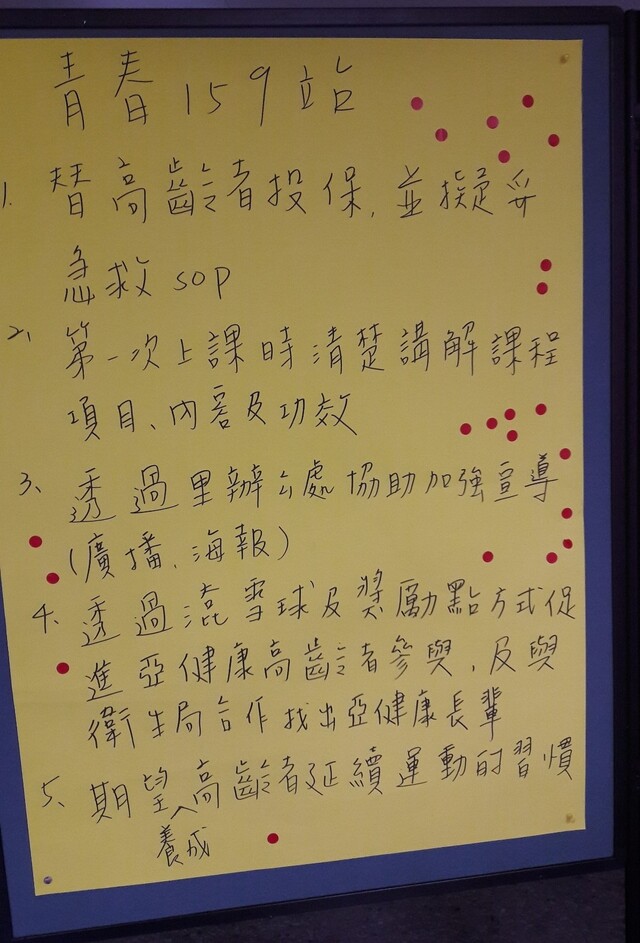 青春159站
1. 替高齡者投保,並擬妥
急救sop
2, 第一次上課時清楚講解課程
項目、內容及功效
3、透過里辦公處協助加強宣導
(廣播、海報)
4、透過滾雪球及獎勵點方式促
進亞健康高齡者參與,及與
衛生局合作找出亞健康長輩
5、期望^高齡者延續運動的習慣
養成